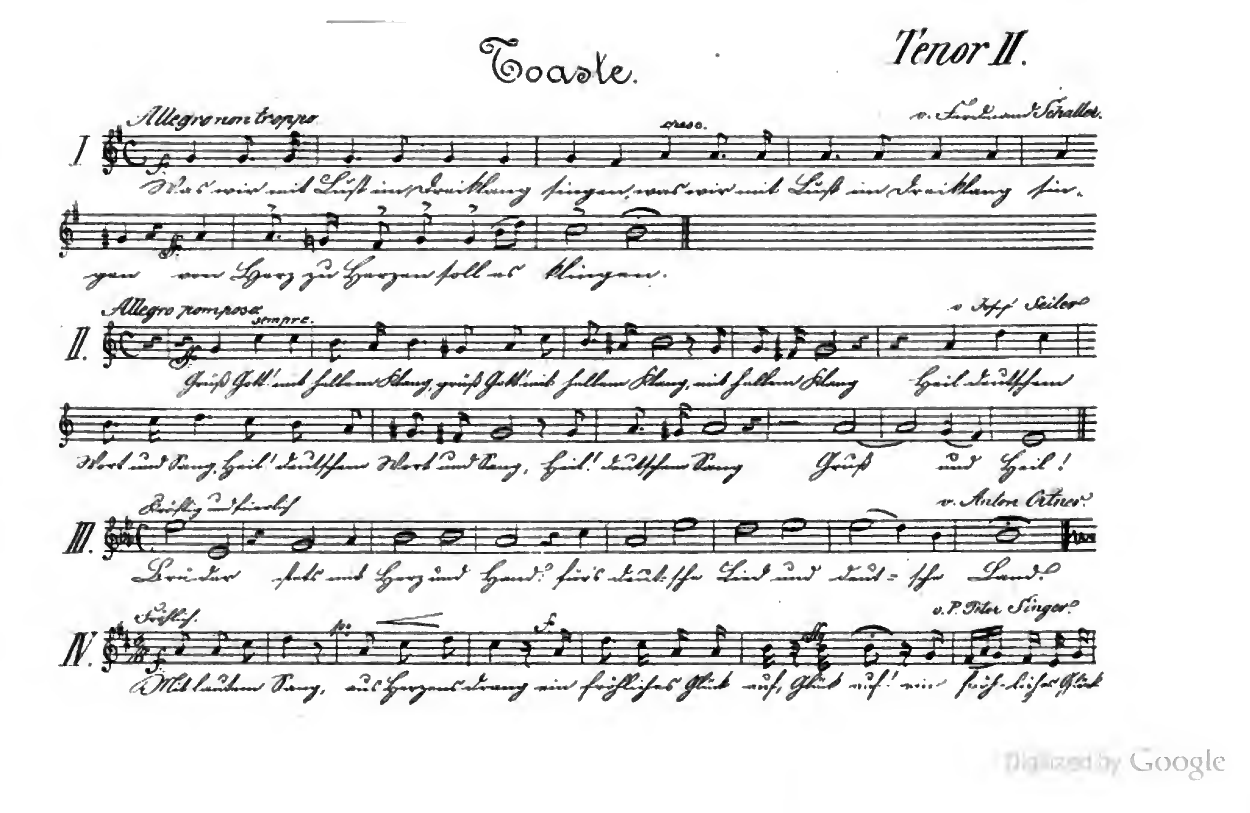 Toaste.
Tenor II.
Allegro non troppo.
v. Ferdinand Schaller.
I
cresc.
f.
Was wir mit Lust im Dreiklang singen, was wir mit Lust im Dreiklang sin-
ff.
gen von Herz zu Herzen soll es klingen.
Allegro pomposo.
sempre.
v. Josef Seiler
II.
ff.
Grüß Gott! mit hellem Klang, grüß Gott! mit hellem Klang, mit hellem Klang Heil deutschem
Wort und Sang, Heil! deutschem Wort und Sang, Heil! deutschem Sang Gruß und Heil!
Kräftig und feierlich
v. Anton Ortner.
III.
Brüder stets mit Herz und Hand! für's deut-sche Lied und deut-sche Land!
Fröhlich.
v. P. Peter Singer.
IV.
f.
Mit lautem Sang, aus Herzens drang ein fröhliches Glück auf, Glück auf! ein fröh-liches Glück
Digitized by Google